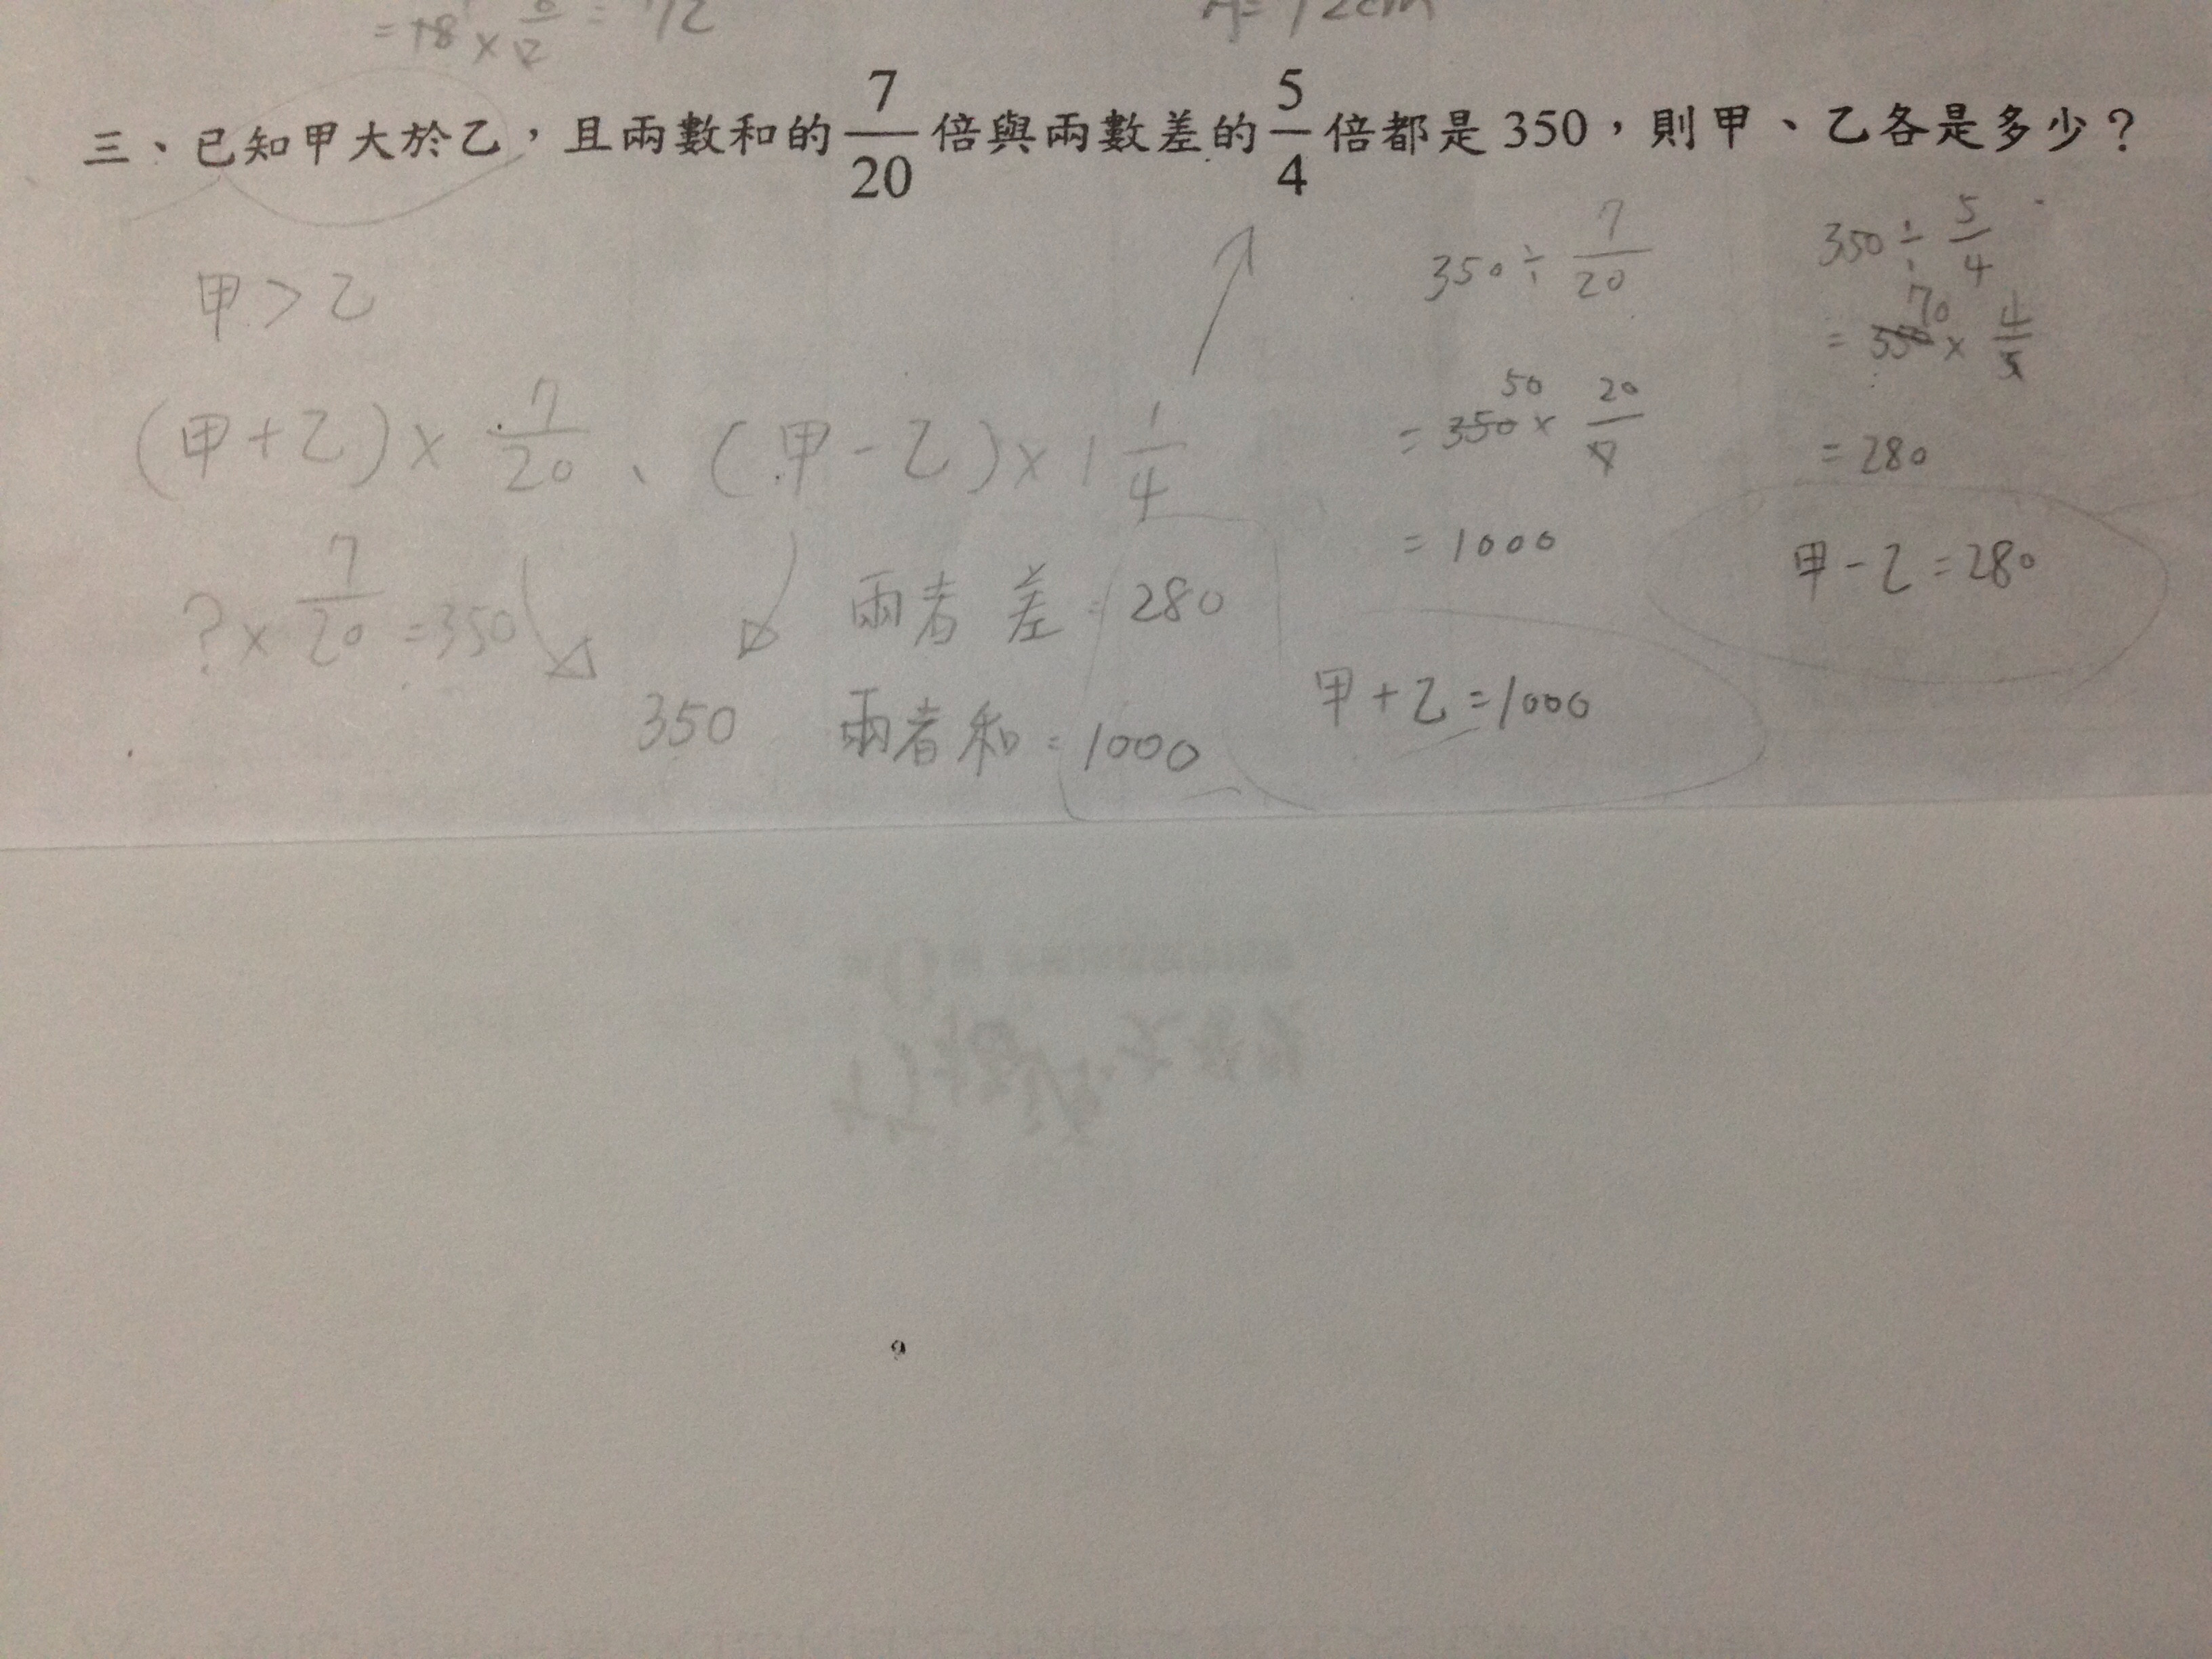 = 18 × 
= 72
= 12cm
三、已知甲大於乙，且兩數和的 7/20 倍與兩數差的 5/4 倍都是 350，則甲、乙各是多少？
甲 > 乙
(甲+乙) × 7/20 、 (甲-乙) × 1 1/4
? × 7/20 = 350
350
兩者 差 = 280
兩者 和 = 1000
350 ÷ 7/20
50
= 350 × 20/7
= 1000
甲 + 乙 = 1000
350 ÷ 5/4
70
= 350 × 4/5
= 280
甲 - 乙 = 280